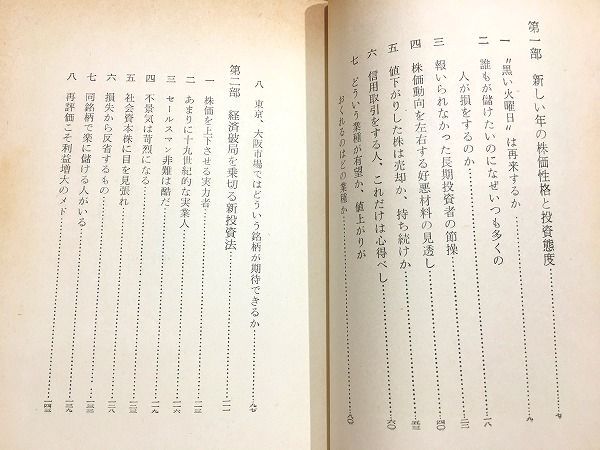 第一部 新しい年の株価性格と投資態度……七
一 〝黒い火曜日〟は再来するか……九
二 誰もが儲けたいのになぜいつも多くの
人が損をするのか……一八
三 報いられなかった長期投資者の節操……二三
四 株価動向を左右する好悪材料の見透し……四〇
五 値下がりした株は売却か、持ち続けか……五三
六 信用取引をする人、これだけは心得べし……六〇
七 どういう業種が有望か、値上がりが
おくれるのはどの業種か……八〇
八 東京、大阪市場ではどういう銘柄が期待できるか……九七
第二部 経済破局を乗切る新投資法……一一一
一 株価を上下させる実力者……一一三
二 あまりに十九世紀的な実業人……一一六
三 セールスマン非難は酷だ……一二六
四 不景気は苛烈になる……一二九
五 社会資本株に目を見張れ……一三二
六 損失から反省するもの……一三八
七 同銘柄で楽に儲ける人がいる……一三三
八 再評価こそ利益増大のメド……一四三